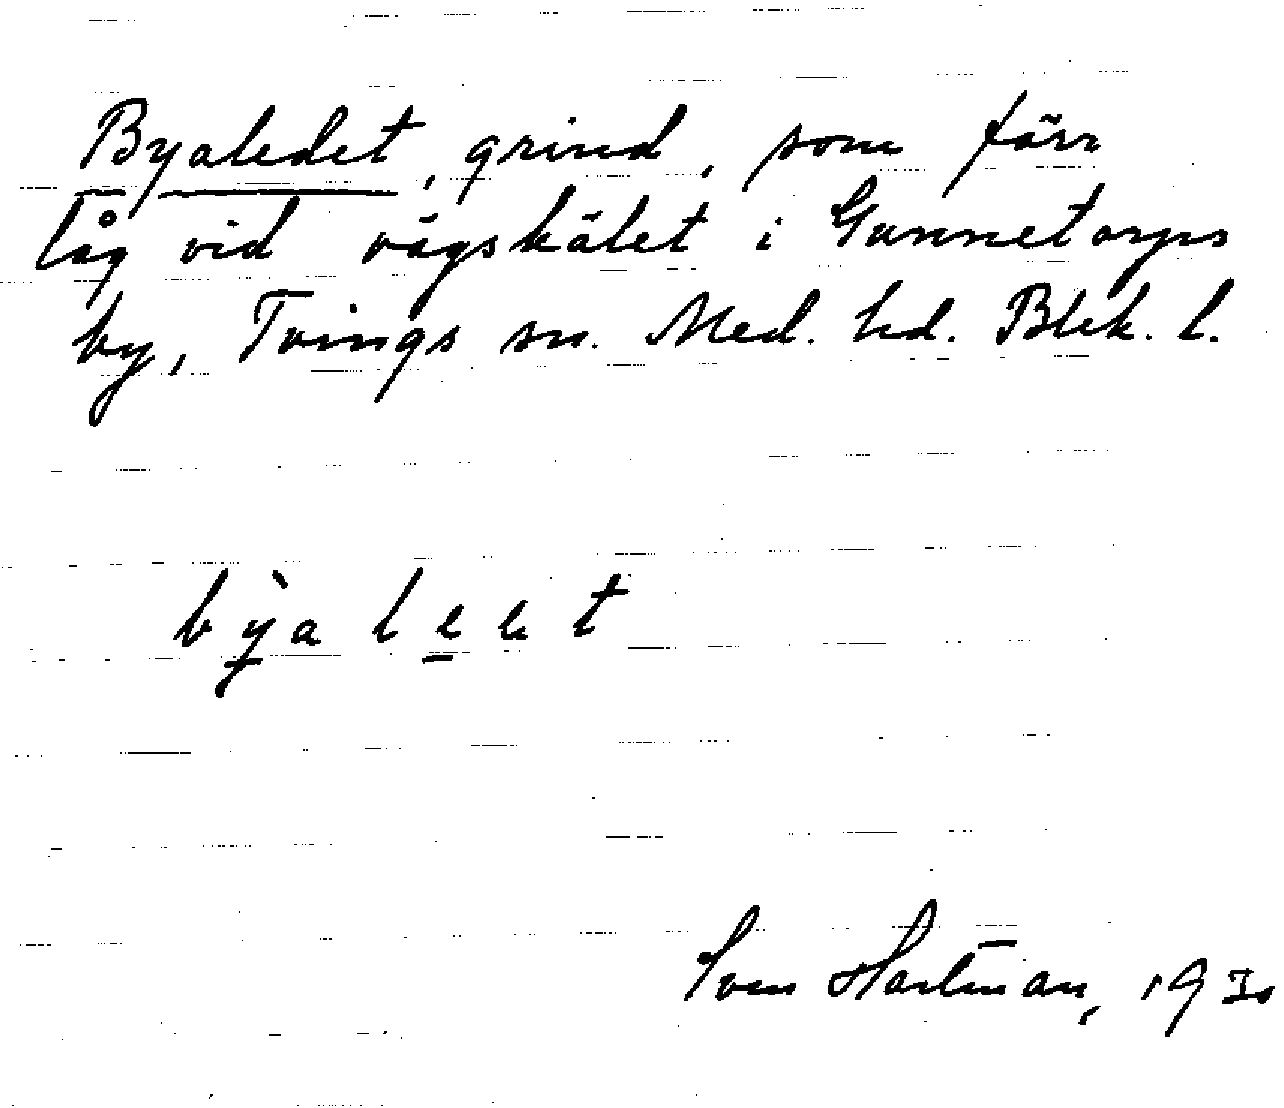 Byaledet, grind, som förr
låg vid vägskälet i Gunnetorps
by, Tvings sn. Med. hd. Blek. l.
Sven Hartman, 1930